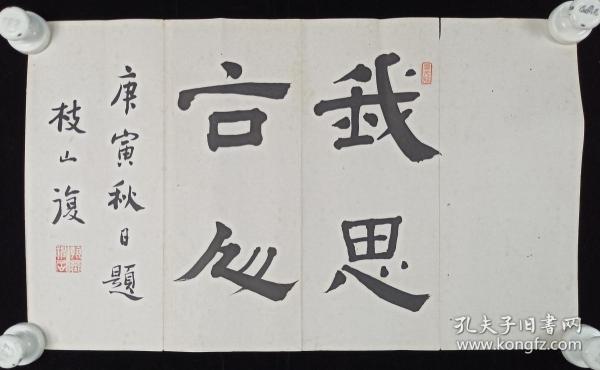 我思
古人
庚寅秋日題
枝山
孔夫子旧书网
www.kongfz.com